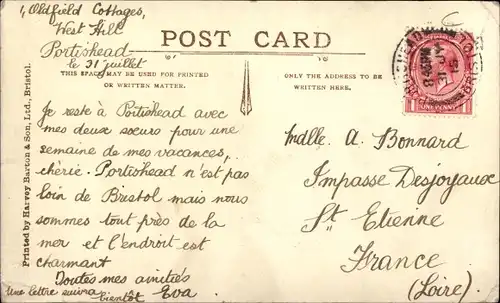 1, Oldfield Cottages,
West Hill
Portishead
le 31 juillet
POST CARD
THIS SPACE MAY BE USED FOR PRINTED
OR WRITTEN MATTER.
ONLY THE ADDRESS TO BE
WRITTEN HERE.
Je reste à Portishead avec
mes deux sœurs pour une
semaine de mes vacances,
chérie. Portishead n'est pas
loin de Bristol mais nous
sommes tout près de la
mer et l'endroit est
charmant
Toutes mes amitiés
Une lettre suivra
bientôt Eva.
Mdlle A. Bonnard
Impasse Desjoyaux
St Etienne
France
(Loire)
Printed by Harvey Barton & Son, Ltd., Bristol.
ONE PENNY